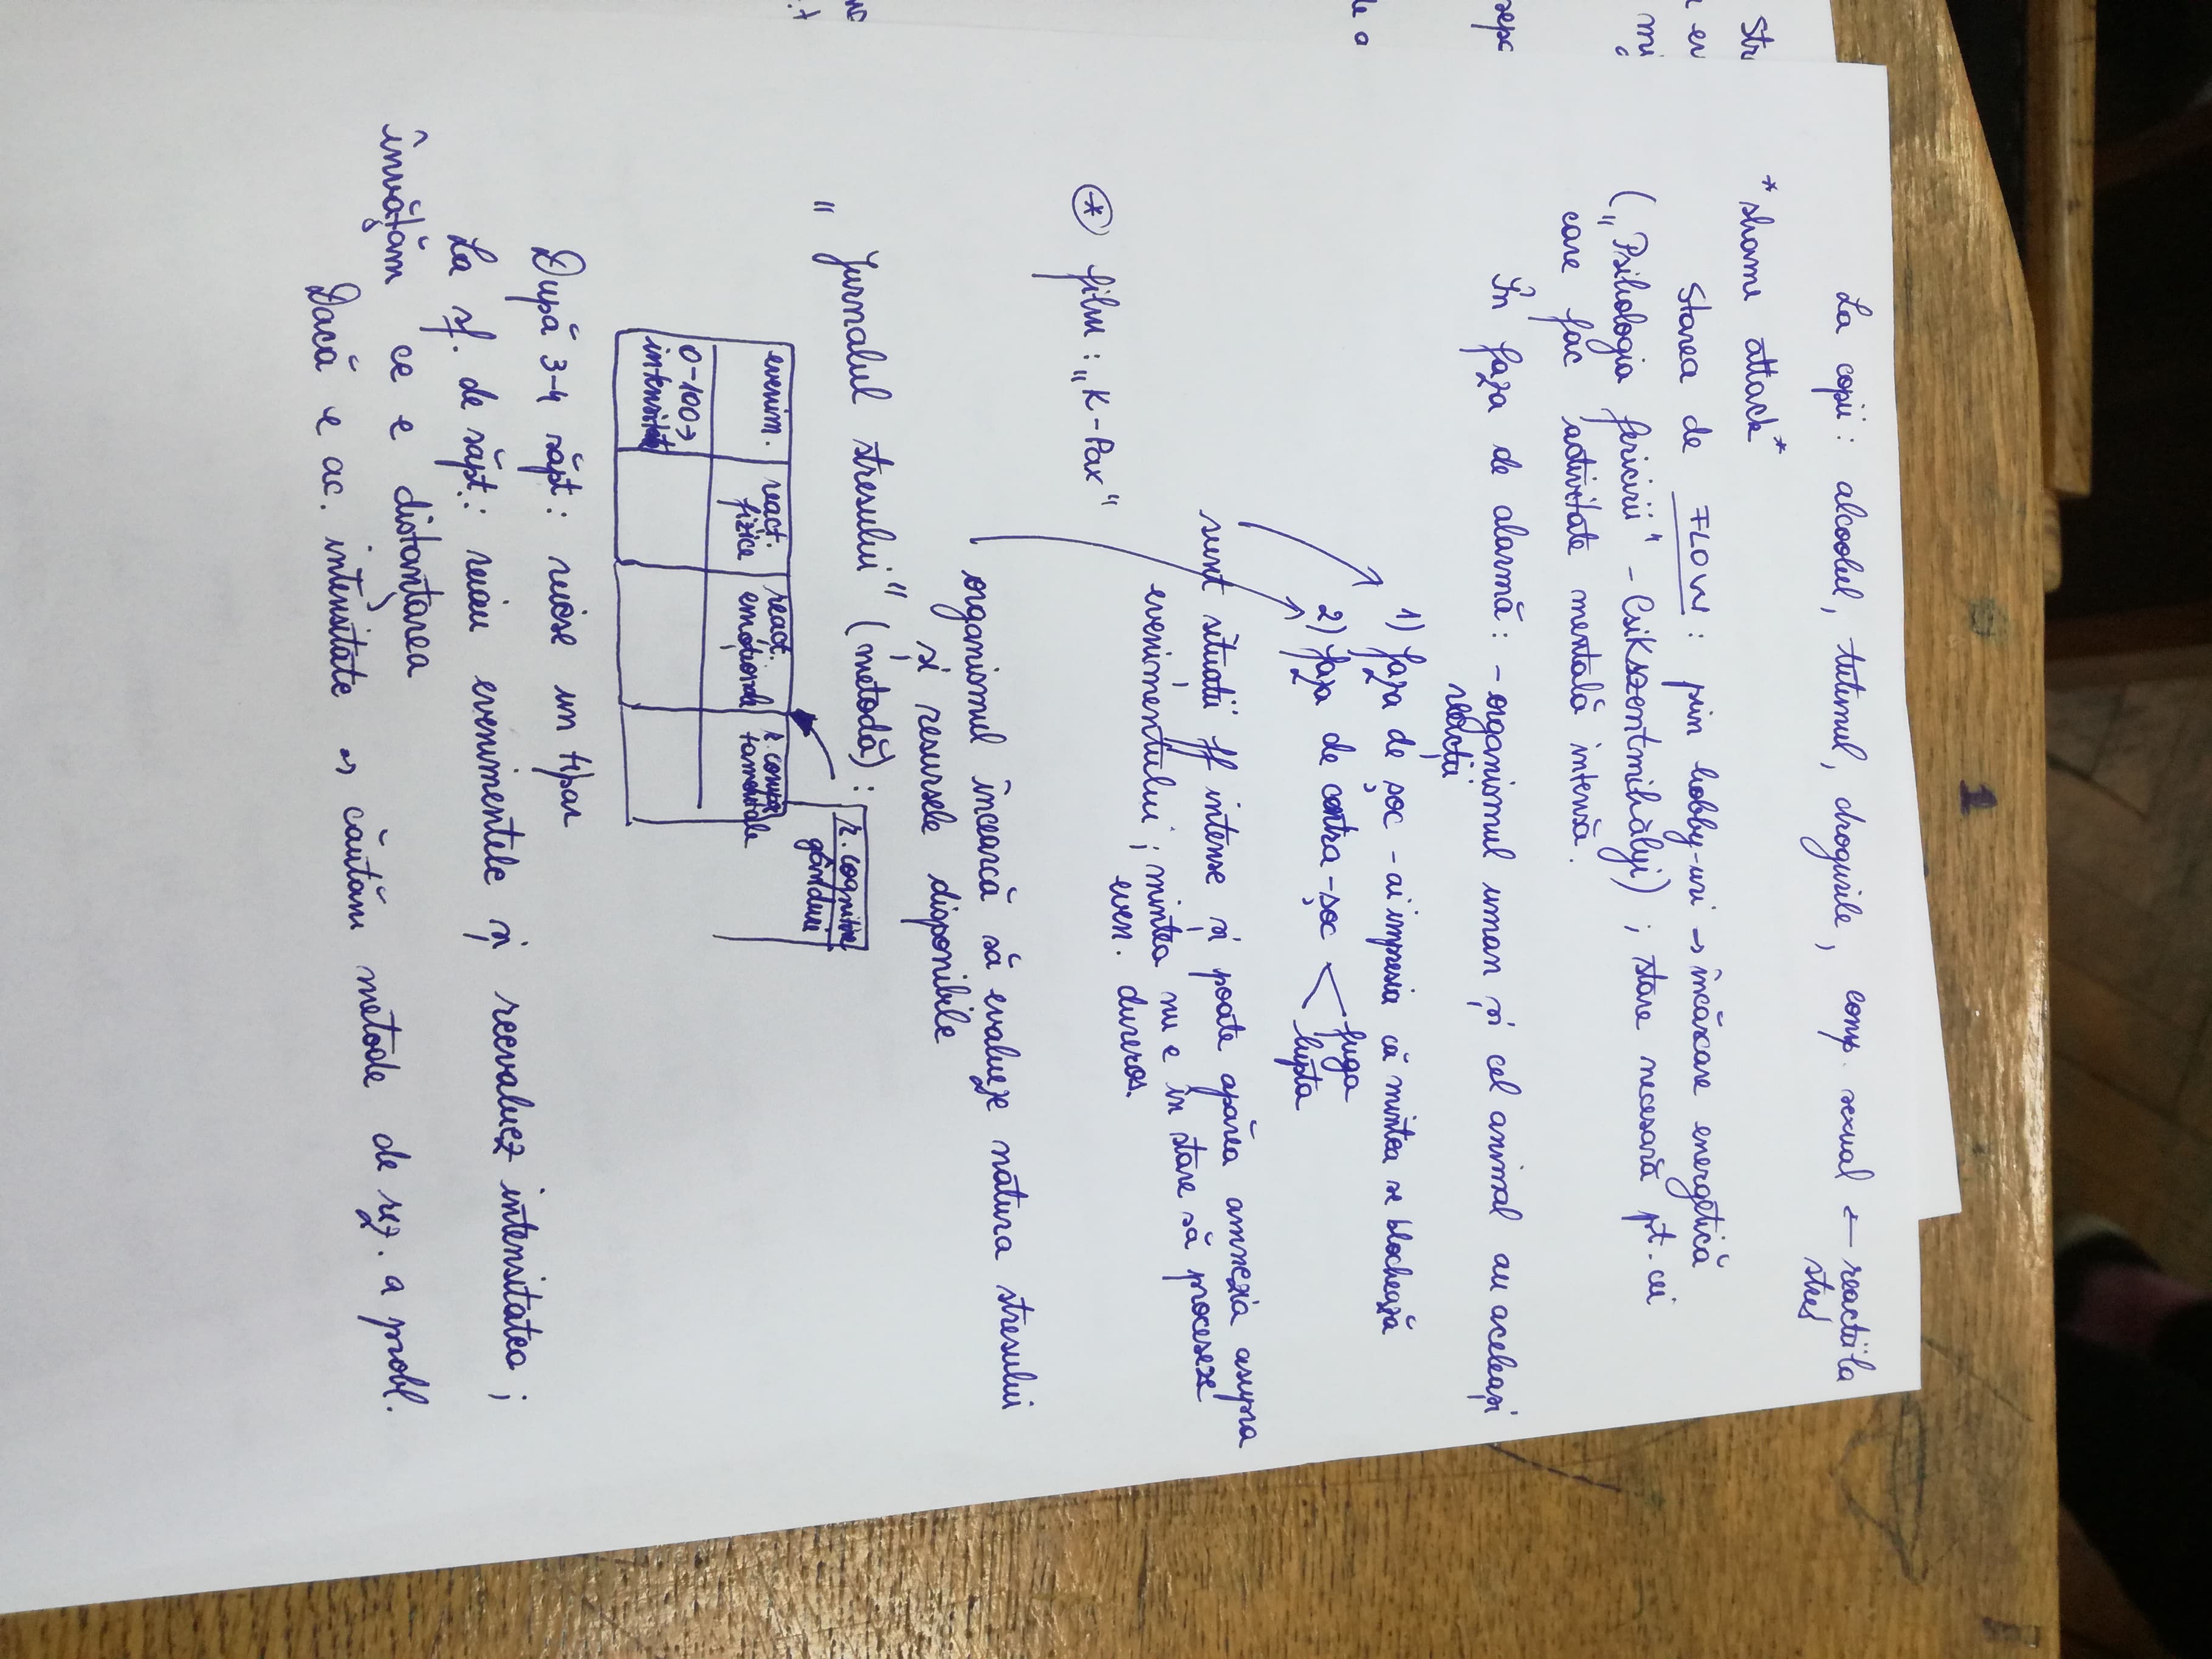 1
La copii: alcoolul, tutunul, drogurile, comp. sexual ← reacții la
stres
*shame attack*
Starea de FLOW: prin hobby-uri → încărcare energetică
(„Psihologia fericirii" - Csikszentmihályi); stare necesară pt. cei
care fac activitate mentală intensă.
În faza de alarmă: - organismul uman și cel animal au aceleași
reacții
1) faza de șoc - ai impresia că mintea se blochează
2) faza de contra-șoc
fuga
lupta
sunt situații ff intense și poate apărea amnezia asupra
evenimentului; mintea nu e în stare să proceseze
even. dureros.
* film: „K-Pax"
organismul încearcă să evalueze natura stresului
și resursele disponibile
„Jurnalul stresului" (metodă):
r. cognitive
gânduri
evenim. react. fizice react. emoționale r. compor tamentale
0-100→
intensitate
După 3-4 săpt: reiese un tipar
La sf. de săpt.: reiau evenimentele și reevaluez intensitatea;
învățăm ce e distanțarea
Dacă e ac. intensitate → căutăm metode de rez. a probl.
Str
ev
mi
sepa
de a